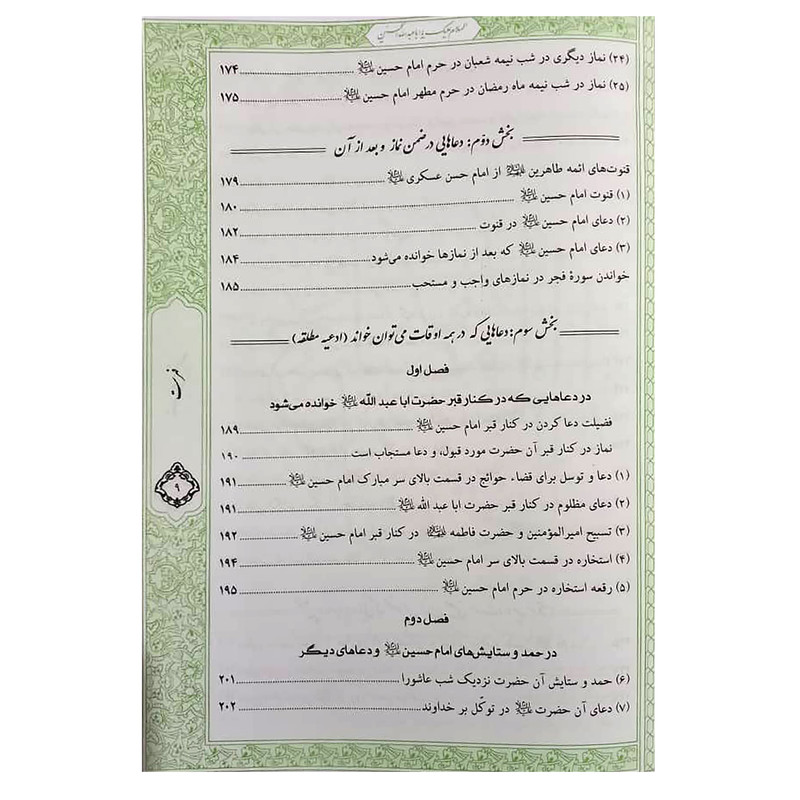 السلام علیک یا اباعبدالله الحسین
(۲۴) نماز دیگری در شب نیمه شعبان در حرم امام حسین علیه السلام ۱۷۴
(۲۵) نماز در شب نیمه ماه رمضان در حرم مطهر امام حسین علیه السلام ۱۷۵
بخش دوّم: دعاهایی در ضمن نماز و بعد از آن
قنوت‌های ائمه طاهرین علیهم السلام از امام حسن عسکری علیه السلام ۱۷۹
(۱) قنوت امام حسین علیه السلام ۱۸۰
(۲) دعای امام حسین علیه السلام در قنوت ۱۸۲
(۳) دعای امام حسین علیه السلام که بعد از نمازها خوانده می‌شود ۱۸۴
خواندن سورهٔ فجر در نمازهای واجب و مستحب ۱۸۵
بخش سوم: دعاهایی که در همه اوقات می‌توان خواند (ادعیه مطلقه)
فصل اول
در دعاهایی که در کنار قبر حضرت ابا عبد الله علیه السلام خوانده می‌شود
فضیلت دعا کردن در کنار قبر امام حسین علیه السلام ۱۸۹
نماز در کنار قبر آن حضرت مورد قبول، و دعا مستجاب است ۱۹۰
(۱) دعا و توسل برای قضاء حوائج در قسمت بالای سر مبارک امام حسین علیه السلام ۱۹۱
(۲) دعای مظلوم در کنار قبر حضرت ابا عبد الله علیه السلام ۱۹۱
(۳) تسبیح امیرالمؤمنین و حضرت فاطمه علیهما السلام در کنار قبر امام حسین علیه السلام ۱۹۲
(۴) استخاره در قسمت بالای سر امام حسین علیه السلام ۱۹۴
(۵) رقعه استخاره در حرم امام حسین علیه السلام ۱۹۵
فصل دوم
در حمد و ستایش‌های امام حسین علیه السلام و دعاهای دیگر
(۶) حمد و ستایش آن حضرت نزدیک شب عاشورا ۲۰۱
(۷) دعای آن حضرت علیه السلام در توکّل بر خداوند ۲۰۲
فهرست
۹